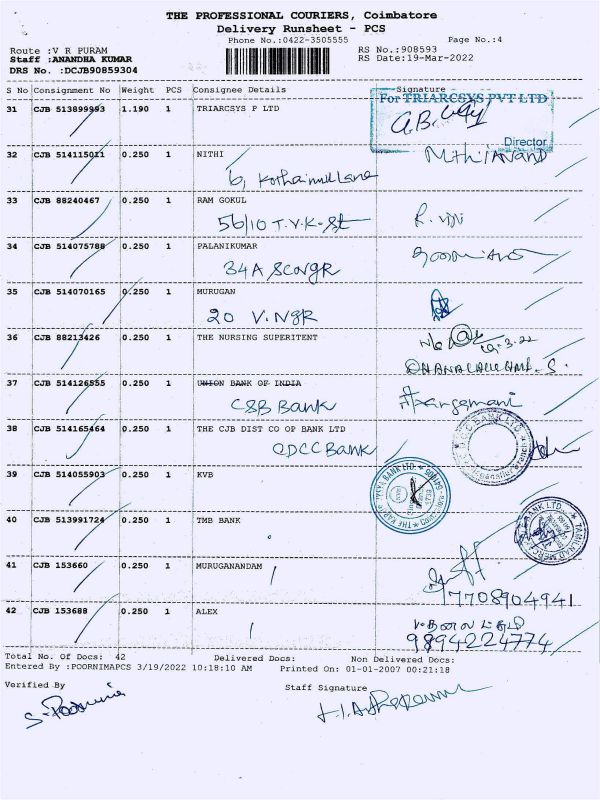 THE PROFESSIONAL COURIERS, Coimbatore
Delivery Runsheet - PCS
Phone No.:0422-3505555 Page No.:4
Route :V R PURAM RS No.:908593
Staff :ANANDHA KUMAR RS Date:19-Mar-2022
DRS No. :DCJB90859304
S No Consignment No Weight PCS Consignee Details Signature
31 CJB 513899993 1.190 1 TRIARCSYS P LTD
For TRIARCSYS PVT LTD
Director
32 CJB 514115011 0.250 1 NITHI
6, Kothaimull Lane
33 CJB 88240467 0.250 1 RAM GOKUL
56/10 T.V.K-St
34 CJB 514075788 0.250 1 PALANIKUMAR
34A
35 CJB 514070165 0.250 1 MURUGAN
20 V.NgR
36 CJB 88213426 0.250 1 THE NURSING SUPERITENT
37 CJB 514126555 0.250 1 UNION BANK OF INDIA
CSB Bank
38 CJB 514165464 0.250 1 THE CJB DIST CO OP BANK LTD
CDCC Bank
39 CJB 514055903 0.250 1 KVB
40 CJB 513991724 0.250 1 TMB BANK
41 CJB 153660 0.250 1 MURUGANANDAM
7708904941
42 CJB 153688 0.250 1 ALEX
9894224774
Total No. Of Docs: 42 Delivered Docs: Non Delivered Docs:
Entered By :POORNIMAPCS 3/19/2022 10:18:10 AM Printed On: 01-01-2007 00:21:18
Verified By Staff Signature
S. Poornima